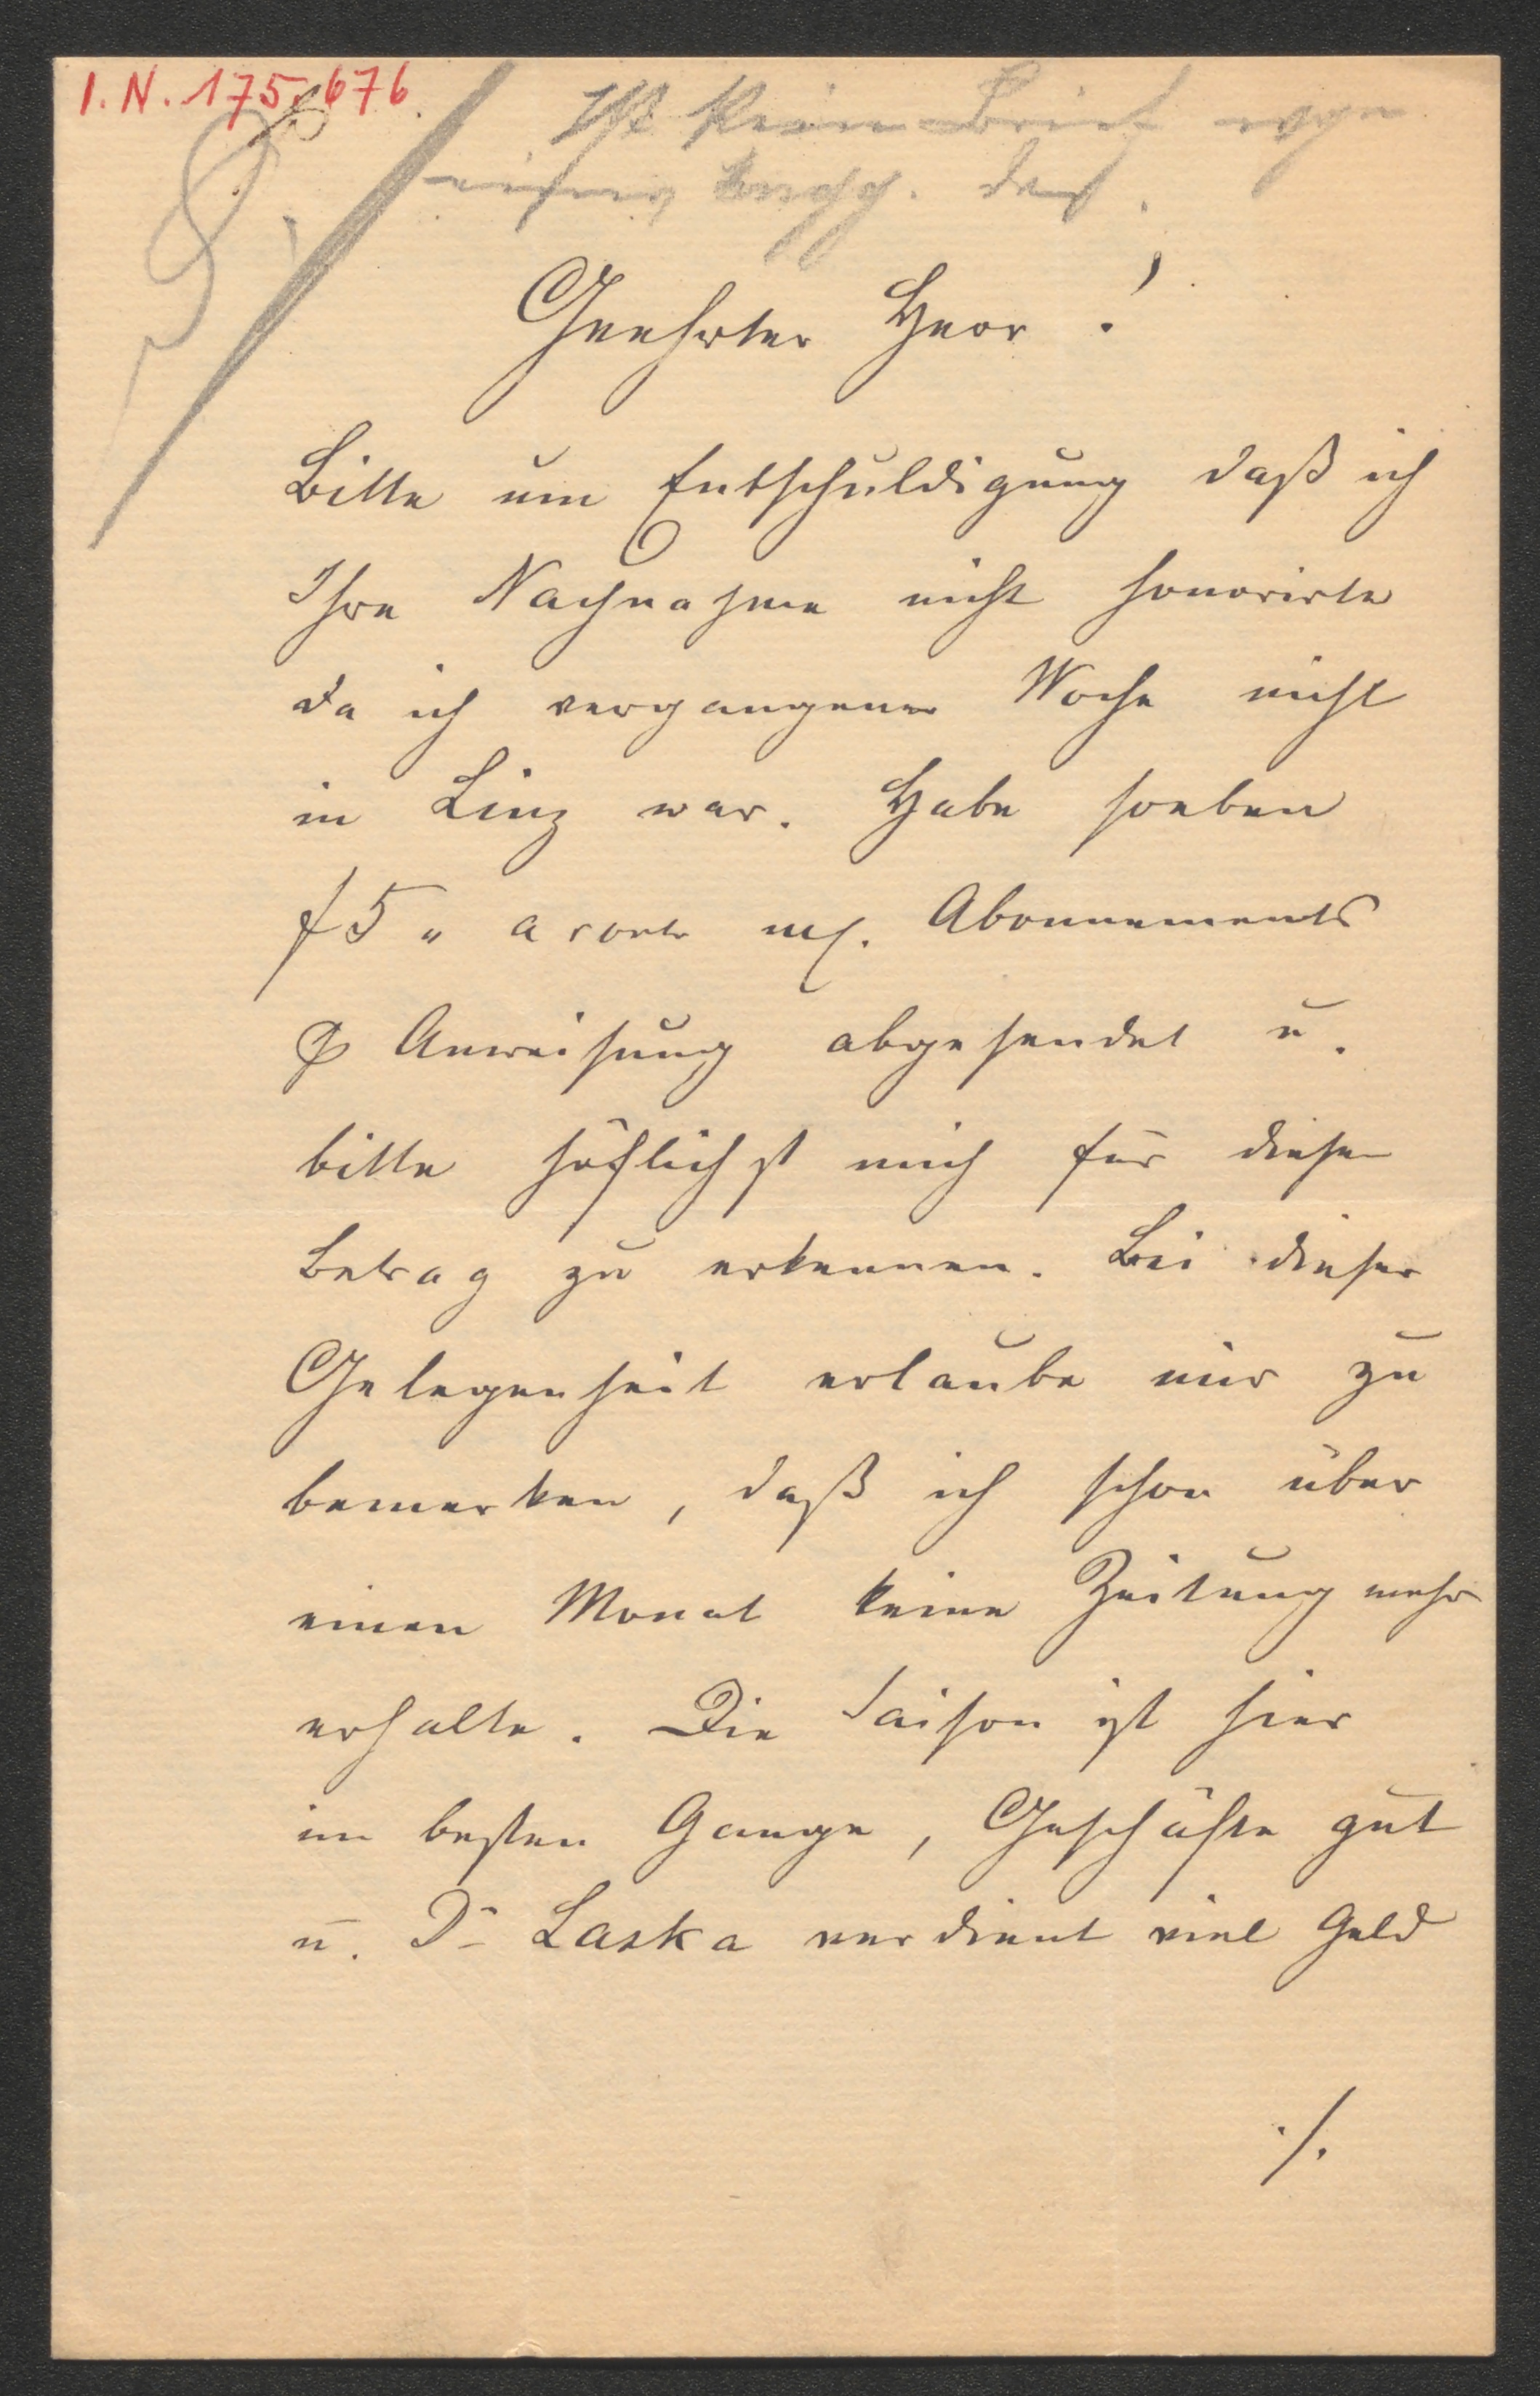 I.N. 175.676
Ist kein Brief
Geehrter Herr!
Bitte um Entschuldigung daß ich
Ihre Nachnahme nicht honorirte
da ich vergangene Woche nicht
in Linz war. Habe soeben
f 5 „ a conto m/. Abonnements
⅌ Anweisung abgesendet u.
bitte höflichst mich für diesen
Betrag zu erkennen. Bei dieser
Gelegenheit erlaube mir zu
bemerken, daß ich schon über
einen Monat keine Zeitung mehr
erhalte. Die Saison ist hier
im besten Gange, Geschäfte gut
u. Dr Laska verdient viel Geld
./.